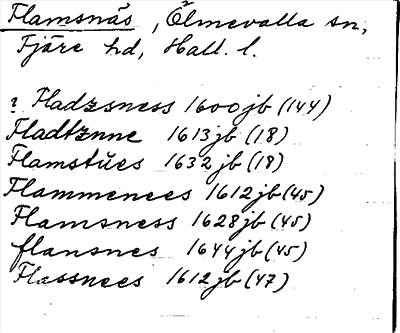 Flamsnäs, Ölmevalla sn,
Fjäre hd, Hall. l.
? Fladzsness 1600 jb (144)
Fladtznne 1613 jb (18)
Flamstŭes 1632 jb (18)
Flammenees 1612 jb (45)
Flamsness 1628 jb (45)
flansnes 1644 jb (45)
Flassnees 1612 jb (47)